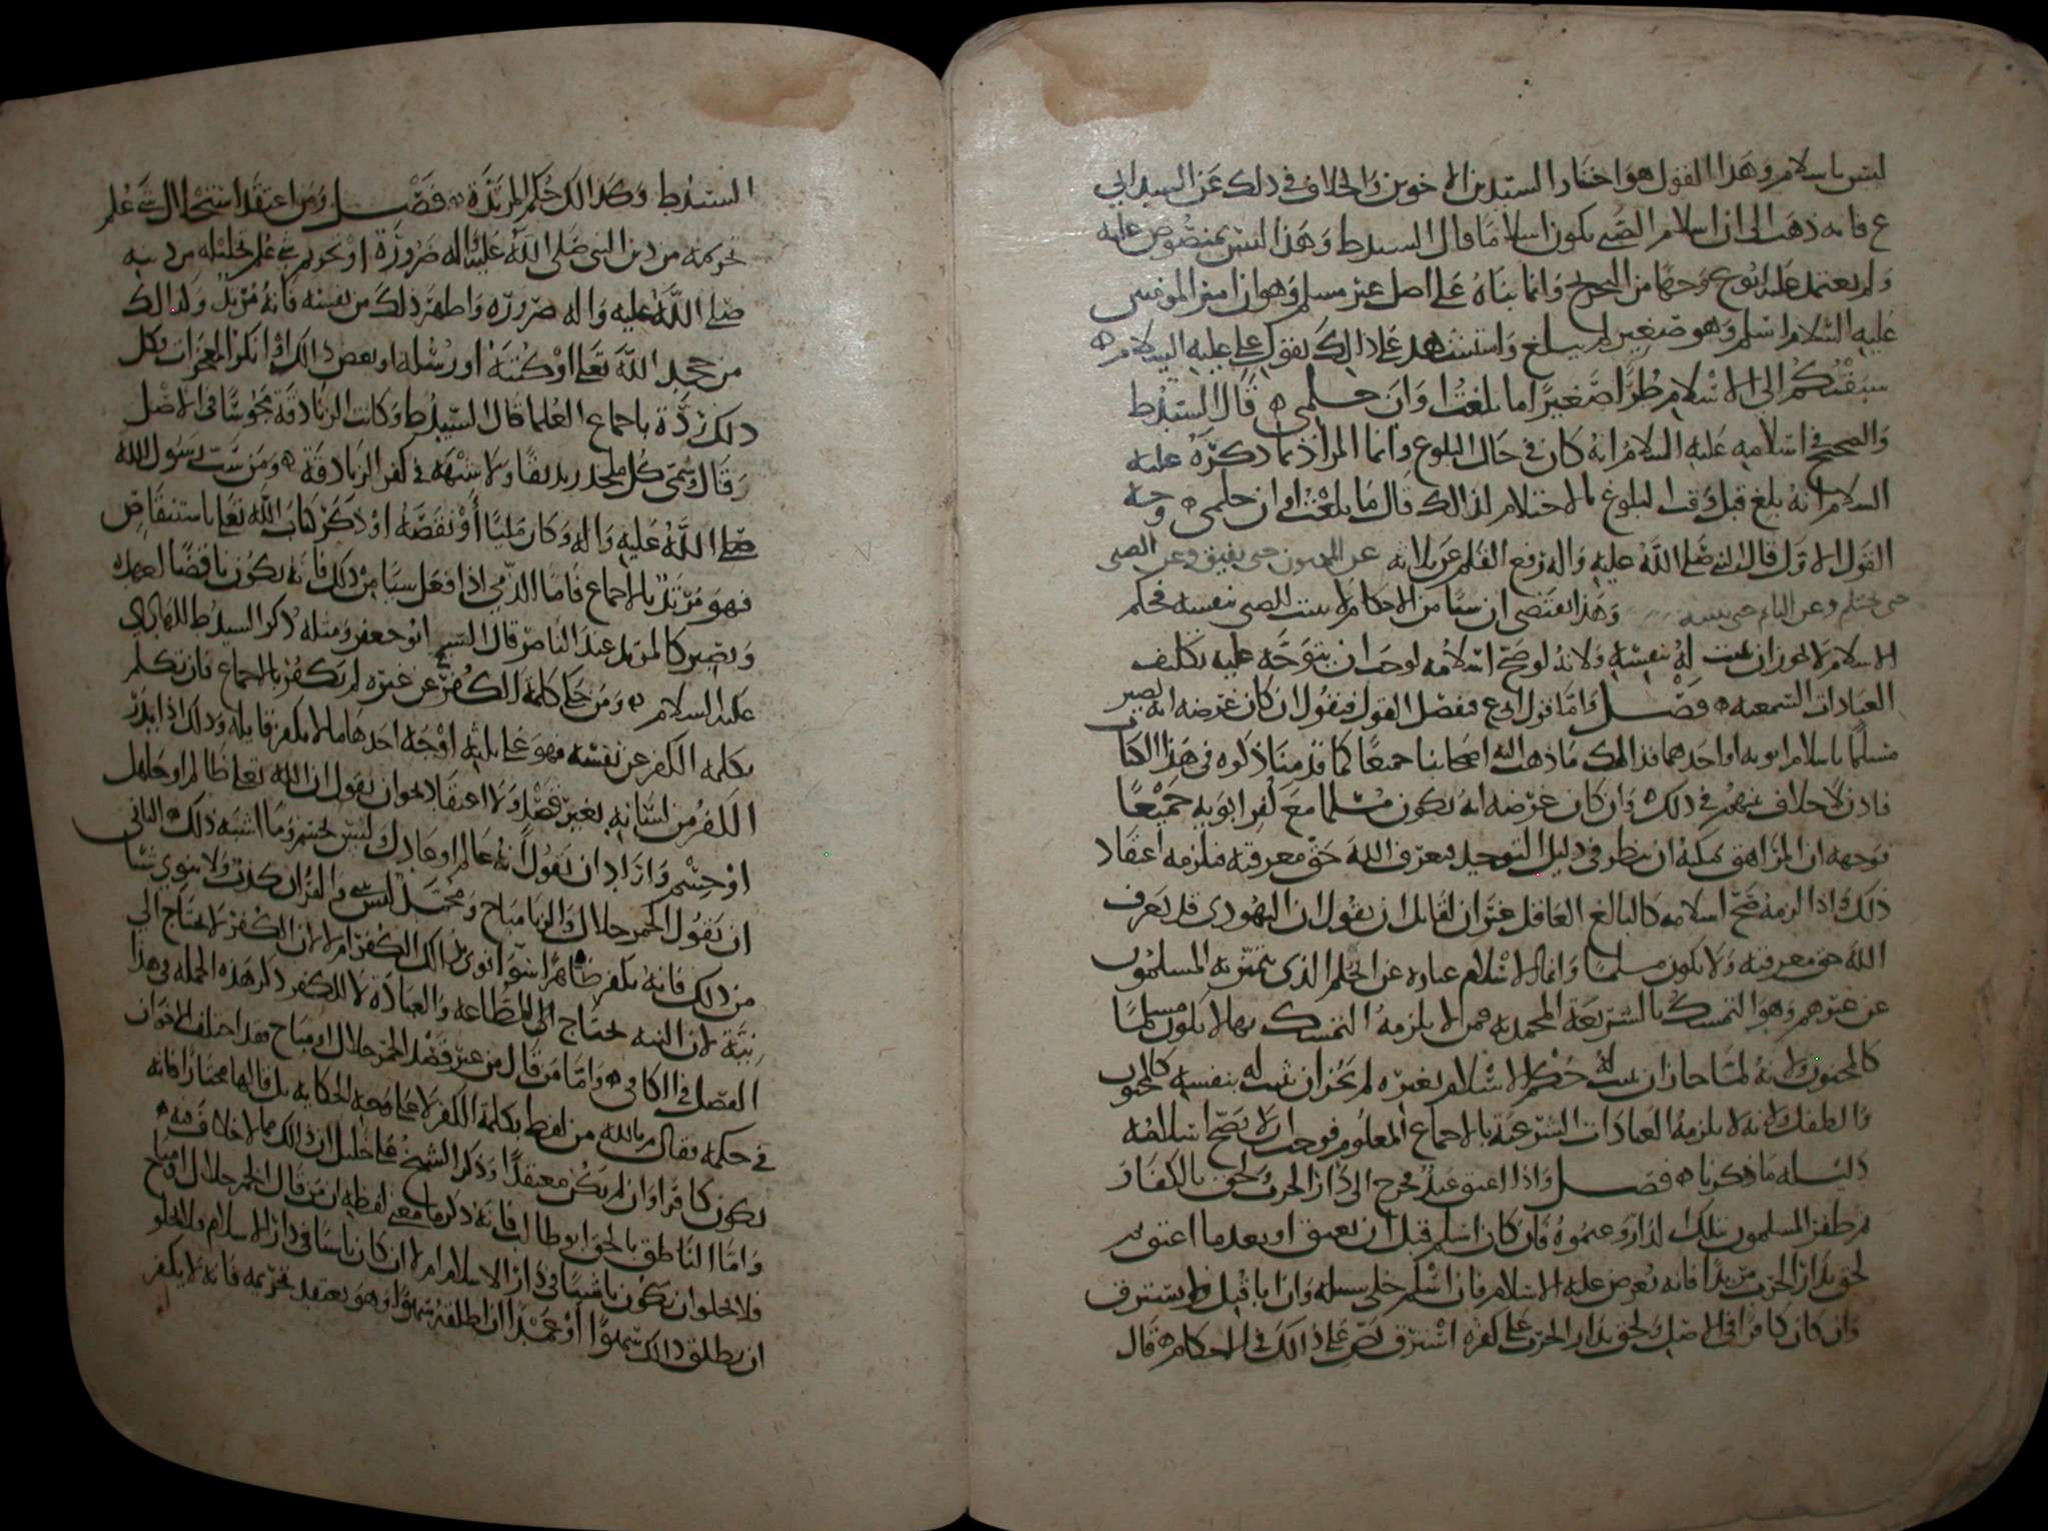 ليس باسلام وهذا القول هو اختيار السيدين الاخوين والخلاف في ذلك عن السيد ابي
ع فانه ذهب الى ان اسلام الصبي يكون اسلاما قال السيد ط وهذا ليس بمنصوص عليه
ولم يعتمد عليه نوع وحها من الحجج وانما بناه على اصل غير مسلم وهو ان امير المومنين
عليه السلام اسلم وهو صغير لم يبلغ واستشهد على ذالك بقول علي عليه السلام ه
سبقتكم الى الاسلام طرا صغيرا ما بلغت اوان حلمي ه قال السيد ط
والصحيح في اسلامه عليه السلام انه كان في حال البلوغ وانما المراد بما ذكره عليه
السلام انه بلغ قبل وقت البلوغ بالاحتلام لذالك قال ما بلغت اوان حلمي ه وجه
القول الاول قال النبي صلى الله عليه واله رفع القلم عن ثلاثه عن المجنون حتى يفيق وعن الصبي
حتى يحتلم وعن النائم حتى ينتبه وهذا يقتضي ان شيا من الاحكام لا يثبت للصبي بنفسه فحكم
الاسلام لا يجوز ان يثبت له بنفسه ولانه لو صح اسلامه لوجب ان يتوجه عليه تكليف
العبادات السمعيه ه فصل واما قول ابي ع فنفصل القول فنقول ان كان غرضه انه يصير
مسلما باسلام ابويه او احدهما فذالك ما ذهب اليه اصحابنا جميعا كما قدمنا ذكره في هذا الكتاب
فاذن لا خلاف بينهم في ذلك ه وان كان غرضه انه يكون مسلما مع كفر ابويه جميعا
فوجهه ان المراهق يمكنه ان ينظر في دليل التوحيد فيعرف الله حق معرفته فيلزمه اعتقاد
ذلك واذا لزمه صح اسلامه كالبالغ العاقل غير ان لقائل ان يقول ان اليهودي قد يعرف
الله حق معرفته ولا يكون مسلما وانما الاسلام عباره عن الحكم الذي يتميز به المسلمون
عن غيرهم وهو التمسك بالشريعة المحمديه فمن لا يلزمه التمسك بها لا يكون مسلما
كالمجنون ولانه لما جاز ان يثبت له حكم الاسلام بغيره لم يجز ان يثبت له بنفسه كالمجنون
والطفل ولانه لا يلزمه العبادات الشرعيه بالاجماع المعلوم فوجب ان لا يصح اسلامه
دليله ما ذكرنا ه فصل واذا اعتق عبد فخرج الى دار الحرب ولحق بالكفار
ثم ظفر المسلمون بتلك الدار وغنموه فان كان اسلم قبل ان يعتق او بعد ما اعتق ثم
لحق بدار الحرب مرتدا فانه يعرض عليه الاسلام فان اسلم خلي سبيله وان ابا قتل ولم يسترق
وان كان كافرا في الاصل ولحق بدار الحرب على كفره استرق نص على ذالك في الاحكام ه قال
السيد ط وكذالك حكم المرتدة ه فصل ومن اعتقد استحلال شي علم
تحريمه من دين النبي صلى الله عليه واله ضرورة او تحريم شي علم تحليله من دينه
صلى الله عليه واله ضروره واظهر ذلك من نفسه فانه مرتد وكذالك
من جحد الله تعالى او كتبه او رسله او بعض ذالك او انكر المعجزات فكل
ذلك ردة باجماع العلما قال السيد ط وكانت الزنادقة مجوسا في الاصل
وقال سمي كل ملحد زنديقا ولا شبهة في كفر الزنادقة ه ومن سب رسول الله
صلى الله عليه واله وكان مليا او نقصه او ذكر كتاب الله تعالى باستنقاص
فهو مرتد بالاجماع فاما الذمي اذا فعل شيا من ذلك فانه يكون ناقضا لعهده
ويصير كالمرتد عند الناصر قال السيد ابو جعفر ومثله ذكر السيد ط للهادي
عليه السلام ه ومن حكى كلمة الكفر عن غيره لم يكفر بالاجماع فان تكلم
بكلمه الكفر عن نفسه فهو على ثلثه اوجه احدها ما لا يكفر قايله وذلك اذا بدر
الكفر من لسانه بغير قصد ولا اعتقاد نحو ان يقول ان الله تعالى ظالم او جاهل
او جسم واراد ان يقول انه عالم او عادل وليس بجسم وما اشبه ذلك ه الثاني
ان يقول الخمر حلال والزنا مباح ومحمد ليس نبي والقران كذب ولا ينوي شيا
من ذلك فانه يكفر ظاهرا سوا نوى بذالك الكفر ام لا لان الكفر لا يحتاج الى
نية لان النيه تحتاج الى الطاعه والعبادة لا للكفر ذكر هذه الجمله في هذا
الفصل في الكافي ه واما من قال من غير قصد الخمر حلال او مباح فقد اختلف الاخوان
في حكمه فقال م بالله من لفظ بكلمة الكفر لا على وجه الحكايه بل قالها مختارا فانه
يكون كافرا وان لم يكن معتقدا وذكر الشيخ علي خليل ان ذالك مما لا خلاف فيه ه
واما الناطق بالحق ابو طالب فانه ذكر ما معنى لفظه ان من قال الخمر حلال او مباح
فلا يخلو ان يكون ناشيا في دار الاسلام ام لا ان كان ناشا في دار الاسلام فلا يخلو
ان يطلق ذالك سهوا او عمدا ان اطلقه سهوا وهو يعتقد تحريمه فانه لا يكفر